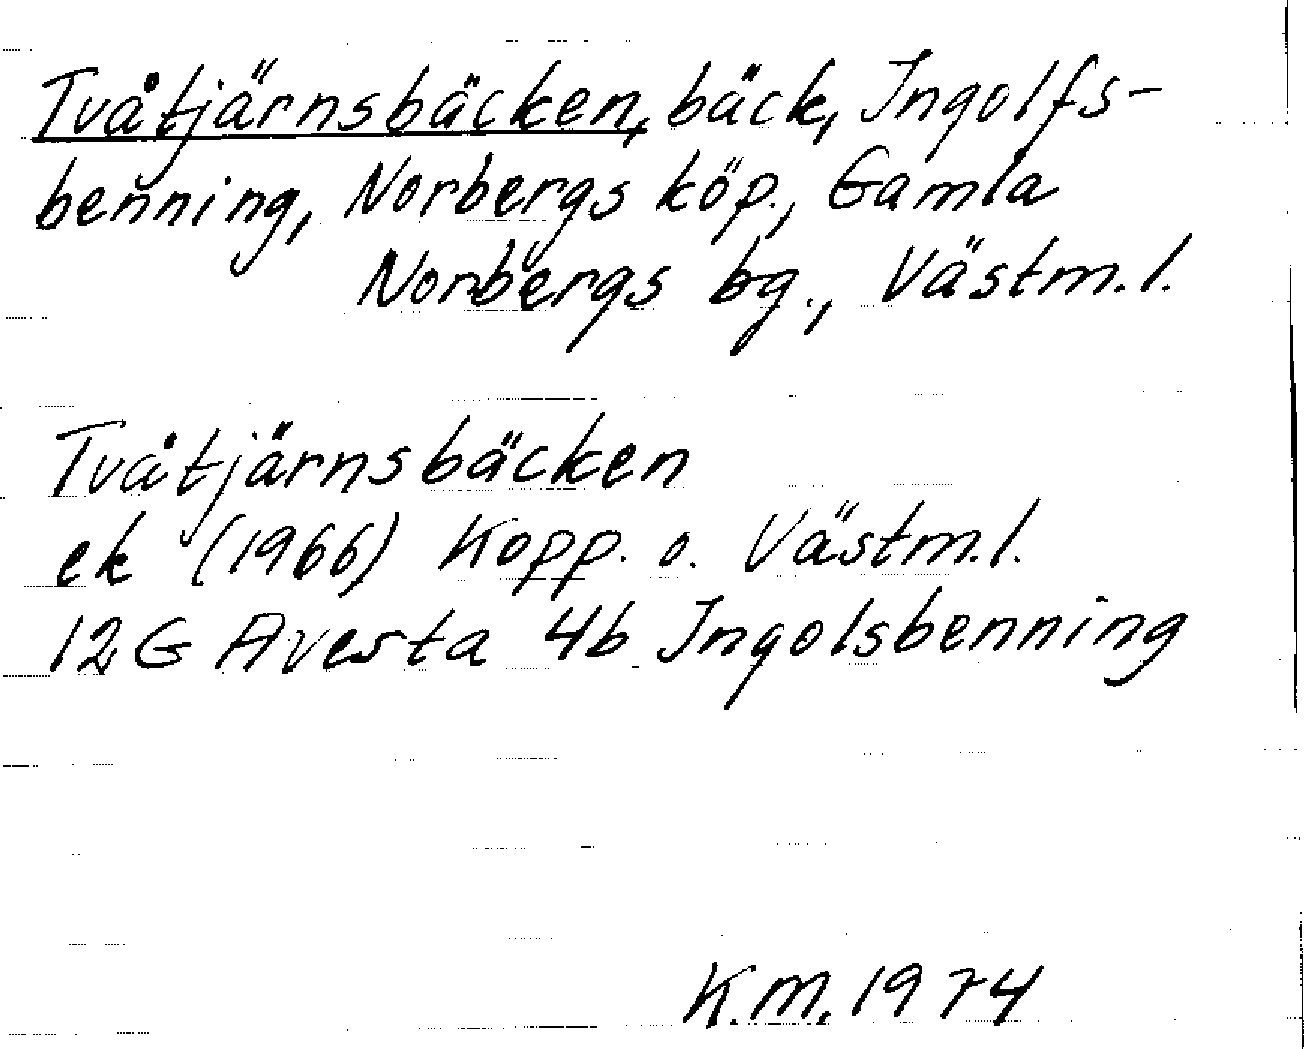 Tvåtjärnsbäcken, bäck, Ingolfs-
benning, Norbergs köp., Gamla
Norbergs bg., Västm.l.
Tvåtjärnsbäcken
ek (1966) Kopp. o. Västm.l.
12G Avesta 4b Ingolsbenning
K.M. 1974